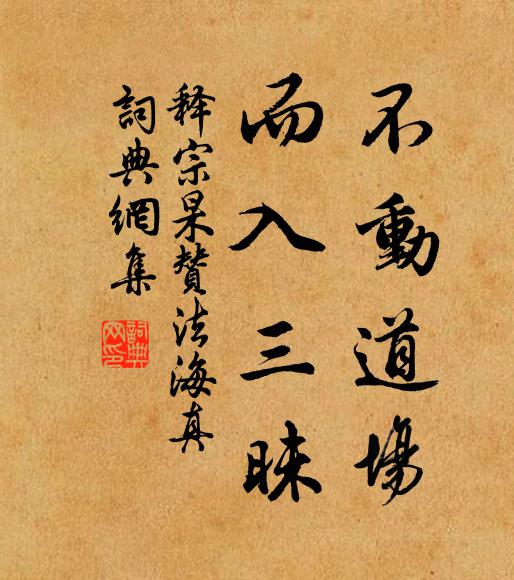 不動道場
而入三昧
释宗杲赞法海真
詞典網集
詞典網印